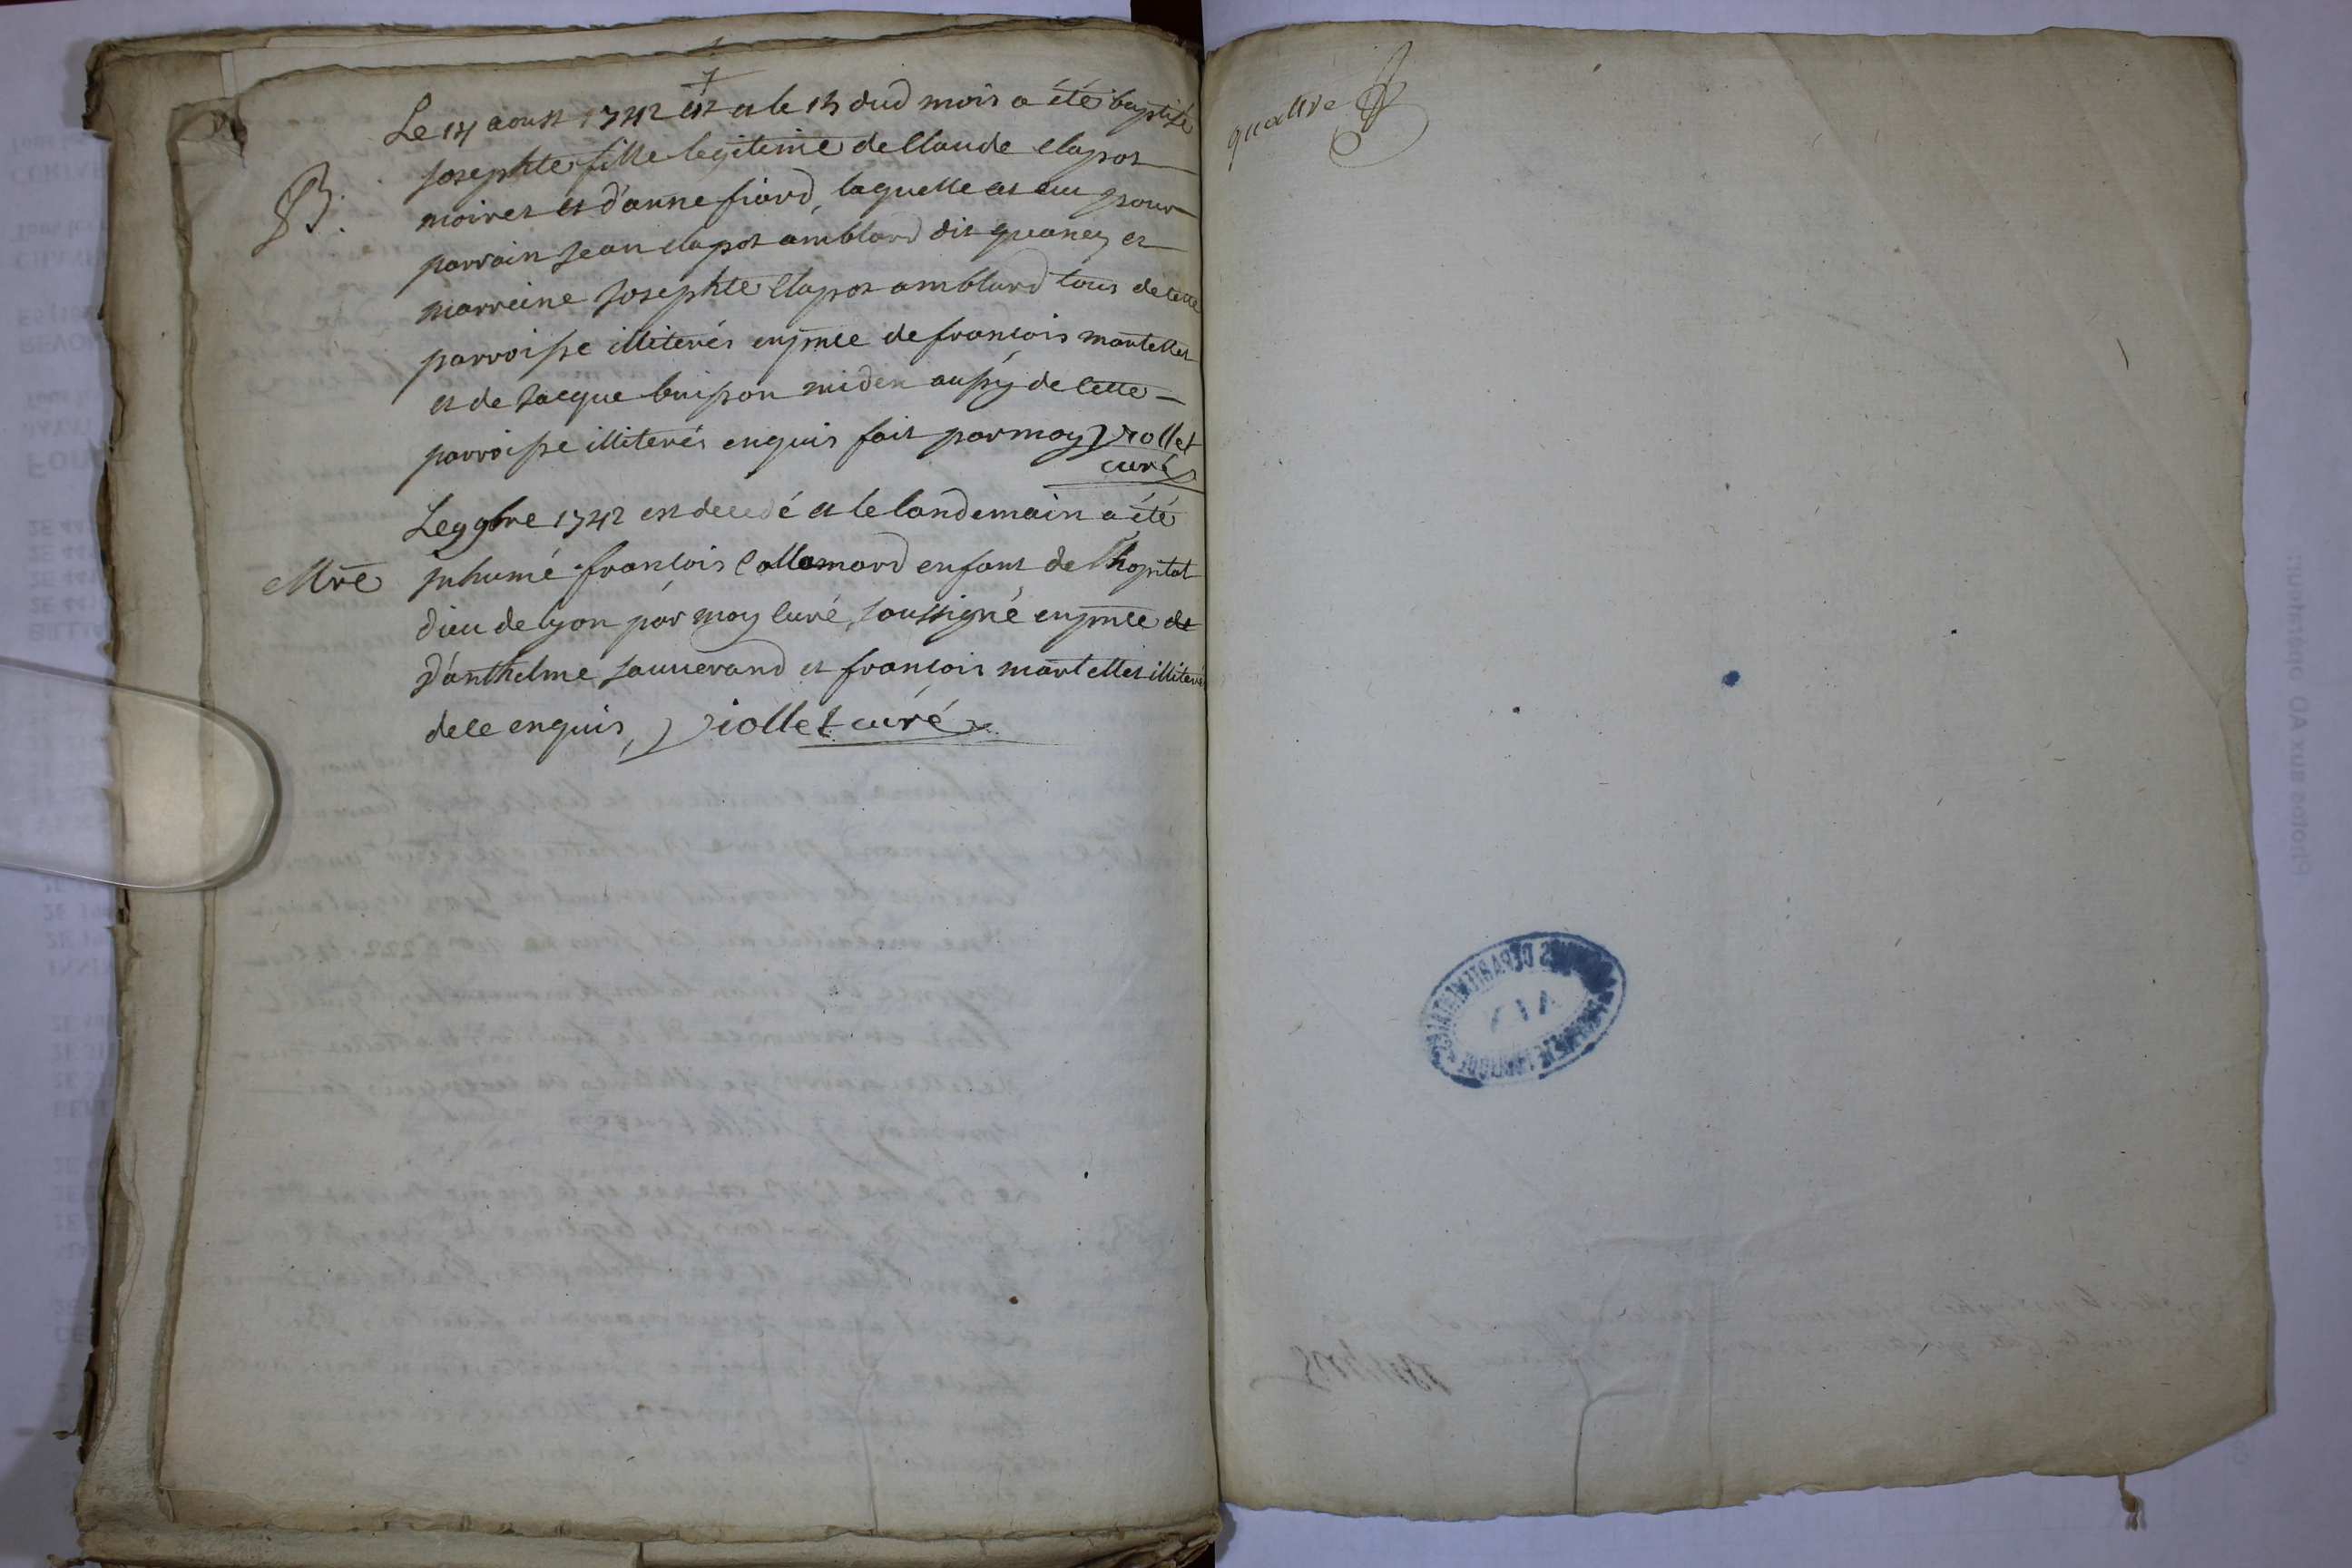 Le 14 aoust 1742 est et le 15 dud mois a été baptisé
B. Josephte fille legitime de Claude Clapot
moiret et d'anne fiard, laquelle at eu pour
parrain Jean clapot amblard dit et
marreine Josephte Clapot amblard tous de cette
parroisse illiterés enpnce de francois martellet
et de Jacque buisson miden aussy de cette
parroisse illiterés enquis fait par moy Viollet
curé
Le 9 9bre 1742 est decedé et le landemain a été
Mre Inhumé francois Callamard enfant de l'hopital
dieu de lyon par moy curé soussigné enpnce de
D'anthelme sauuerand et francois martellet illiterés
de ce enquis, Viollet curé
quattre